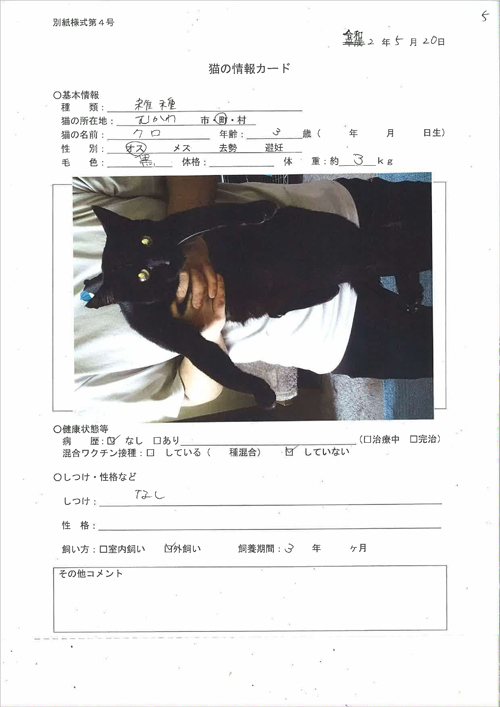 別紙様式第4号
5
令和
平成 2 年 5 月 20日
猫の情報カード
○基本情報
種　　類： 雑種
猫の所在地： むかわ 市・町・村
猫の名前： クロ 年齢： 3 歳（　年　月　日生）
性　　別： オス　メス　去勢　避妊
毛　　色： 黒 体格： 体　重：約 3 kg
○健康状態等
病　　歴：☑ なし □あり （□治療中　□完治）
混合ワクチン接種：□ している（　種混合） ☑ していない
○しつけ・性格など
しつけ： なし
性　格：
飼い方：□室内飼い ☑外飼い 飼養期間： 3 年　ヶ月
その他コメント